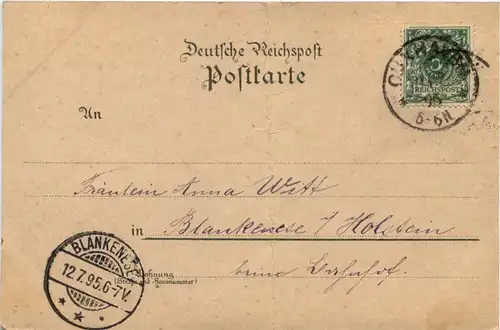 Deutsche Reichspost
Postkarte
5
REICHSPOST
95
5-6N
An
Fräulein Anna Witt
in Blankenese / Holstein
BLANKENESE
12.7.95.6-7V.
Wohnung
(Straße und Hausnummer)
beim Bahnhof